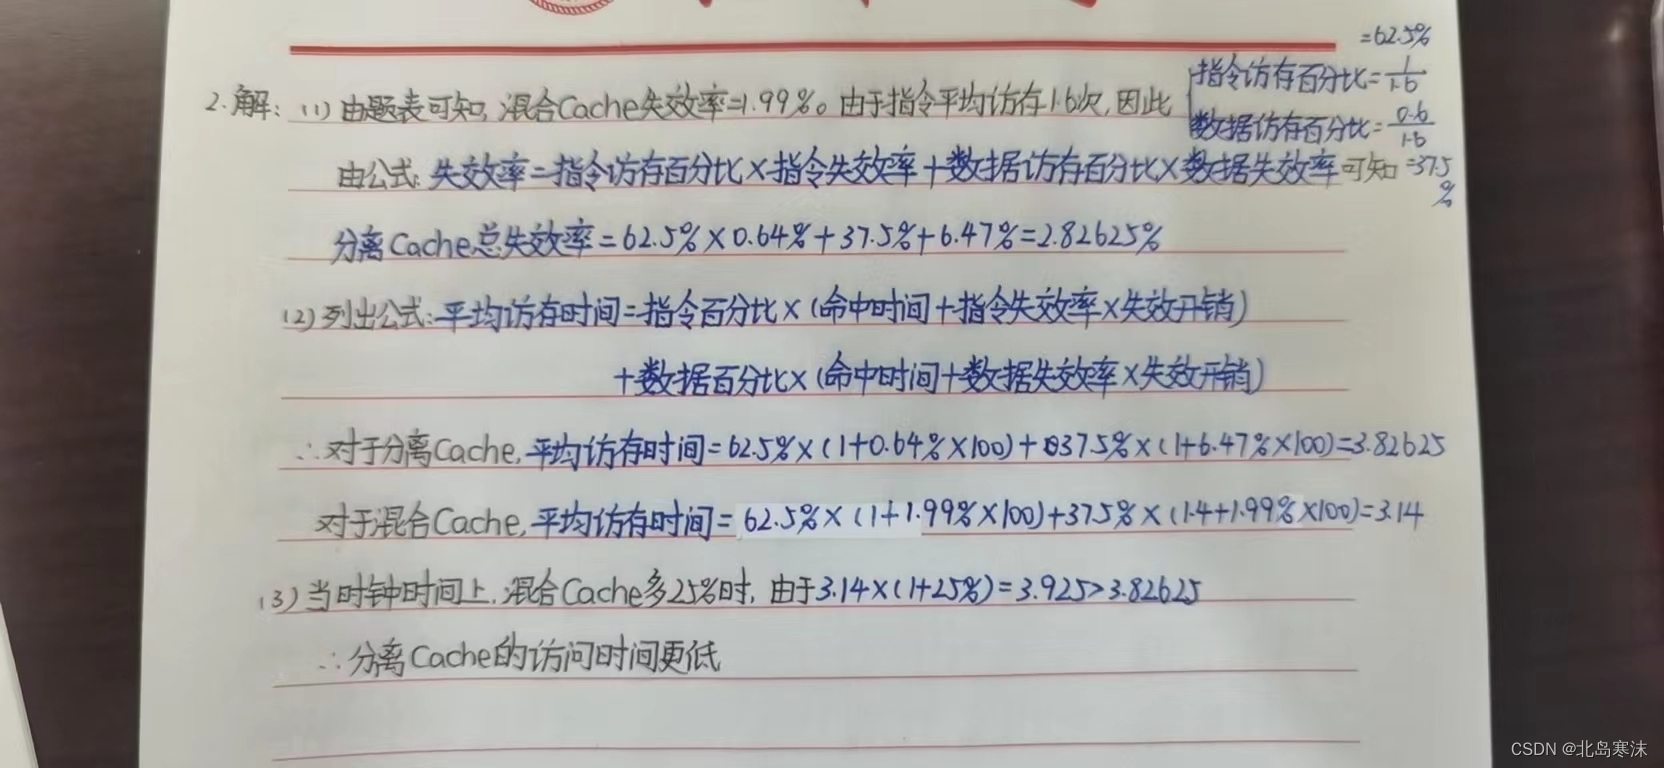 =62.5%
指令访存百分比=1/1.6
2.解: (1)由题表可知,混合Cache失效率=1.99%。由于指令平均访存1.6次,因此
数据访存百分比=0.6/1.6
由公式:失效率=指令访存百分比×指令失效率+数据访存百分比×数据失效率可知 =37.5%
分离Cache总失效率=62.5%×0.64%+37.5%+6.47%=2.82625%
(2)列出公式:平均访存时间=指令百分比×(命中时间+指令失效率×失效开销)
+数据百分比×(命中时间+数据失效率×失效开销)
∴对于分离Cache,平均访存时间=62.5%×(1+0.64%×100)+037.5%×(1+6.47%×100)=3.82625
对于混合Cache,平均访存时间=62.5%×(1+1.99%×100)+37.5%×(1.4+1.99%×100)=3.14
(3)当时钟时间上,混合Cache多25%时,由于3.14×(1+25%)=3.925>3.82625
∴分离Cache的访问时间更低
CSDN @北岛寒沫